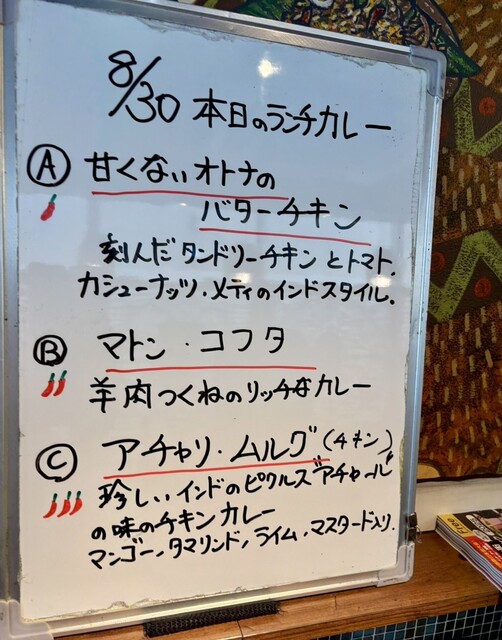 8/30 本日のランチカレー
Ⓐ 甘くないオトナの
バターチキン
刻んだタンドリーチキンとトマト,
カシューナッツ・メティのインドスタイル。
Ⓑ マトン・コフタ
羊肉つくねのリッチなカレー
Ⓒ アチャリ・ムルグ(チキン)
珍しいインドのピクルス"アチャール"
の味のチキンカレー
マンゴー,タマリンド,ライム,マスタード入り.
Free